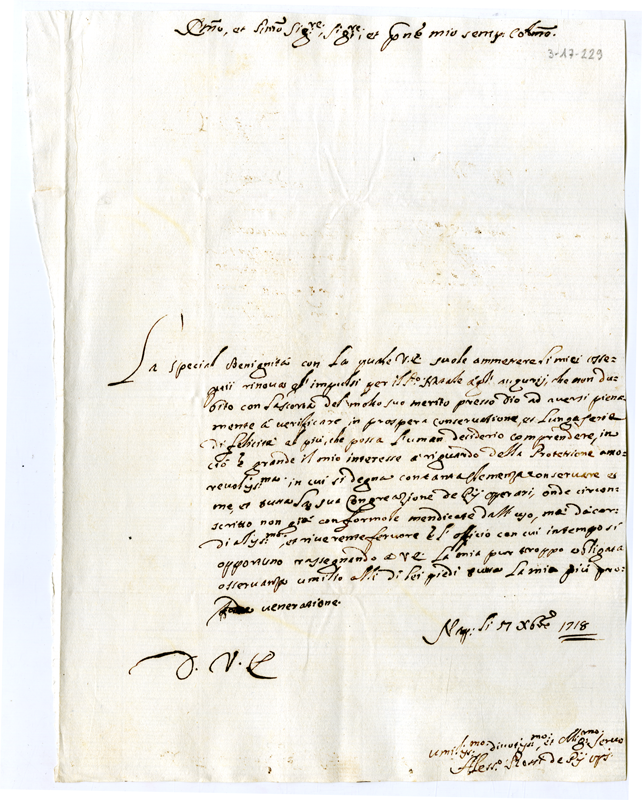 Emo, et Rmo Sigre, Sigre, et Pne mio semp. Colmo.
3-17-229
La special Benignità con la quale V.E. suole ammettere li miei osse-
quii rinova gl'impulsi per il Sto Natale agli augurij, che non du-
bito con la scorta del molto suo merito presso Dio ad aversi piena
mente à verificare in prospera conservatione, et lunga serie
di felicità al più, che possa l'human desiderio comprendere, in
ciò è grande il mio interesse à riguardo della Protettione amo-
revoliss.ma in cui si degna con tanta clemenza conservare
me, et tutta la sua Congregazione de Pij operarij, onde circon-
scritto non già con formole mendicate dall'uso, ma da cor-
dialiss.mo, et riverente fervore è l'officio con cui in tempo sì
opportuno rassegnando à V.E. la mia pur troppo obligata
osservanza umilio alli di lei piedi tutta la mia più pro-
venerazione.
Nap: li 17 Xbre 1718
D. V. E.
Umiliss.mo, divotiss.mo, et Servo
Aless.o de Pij op.